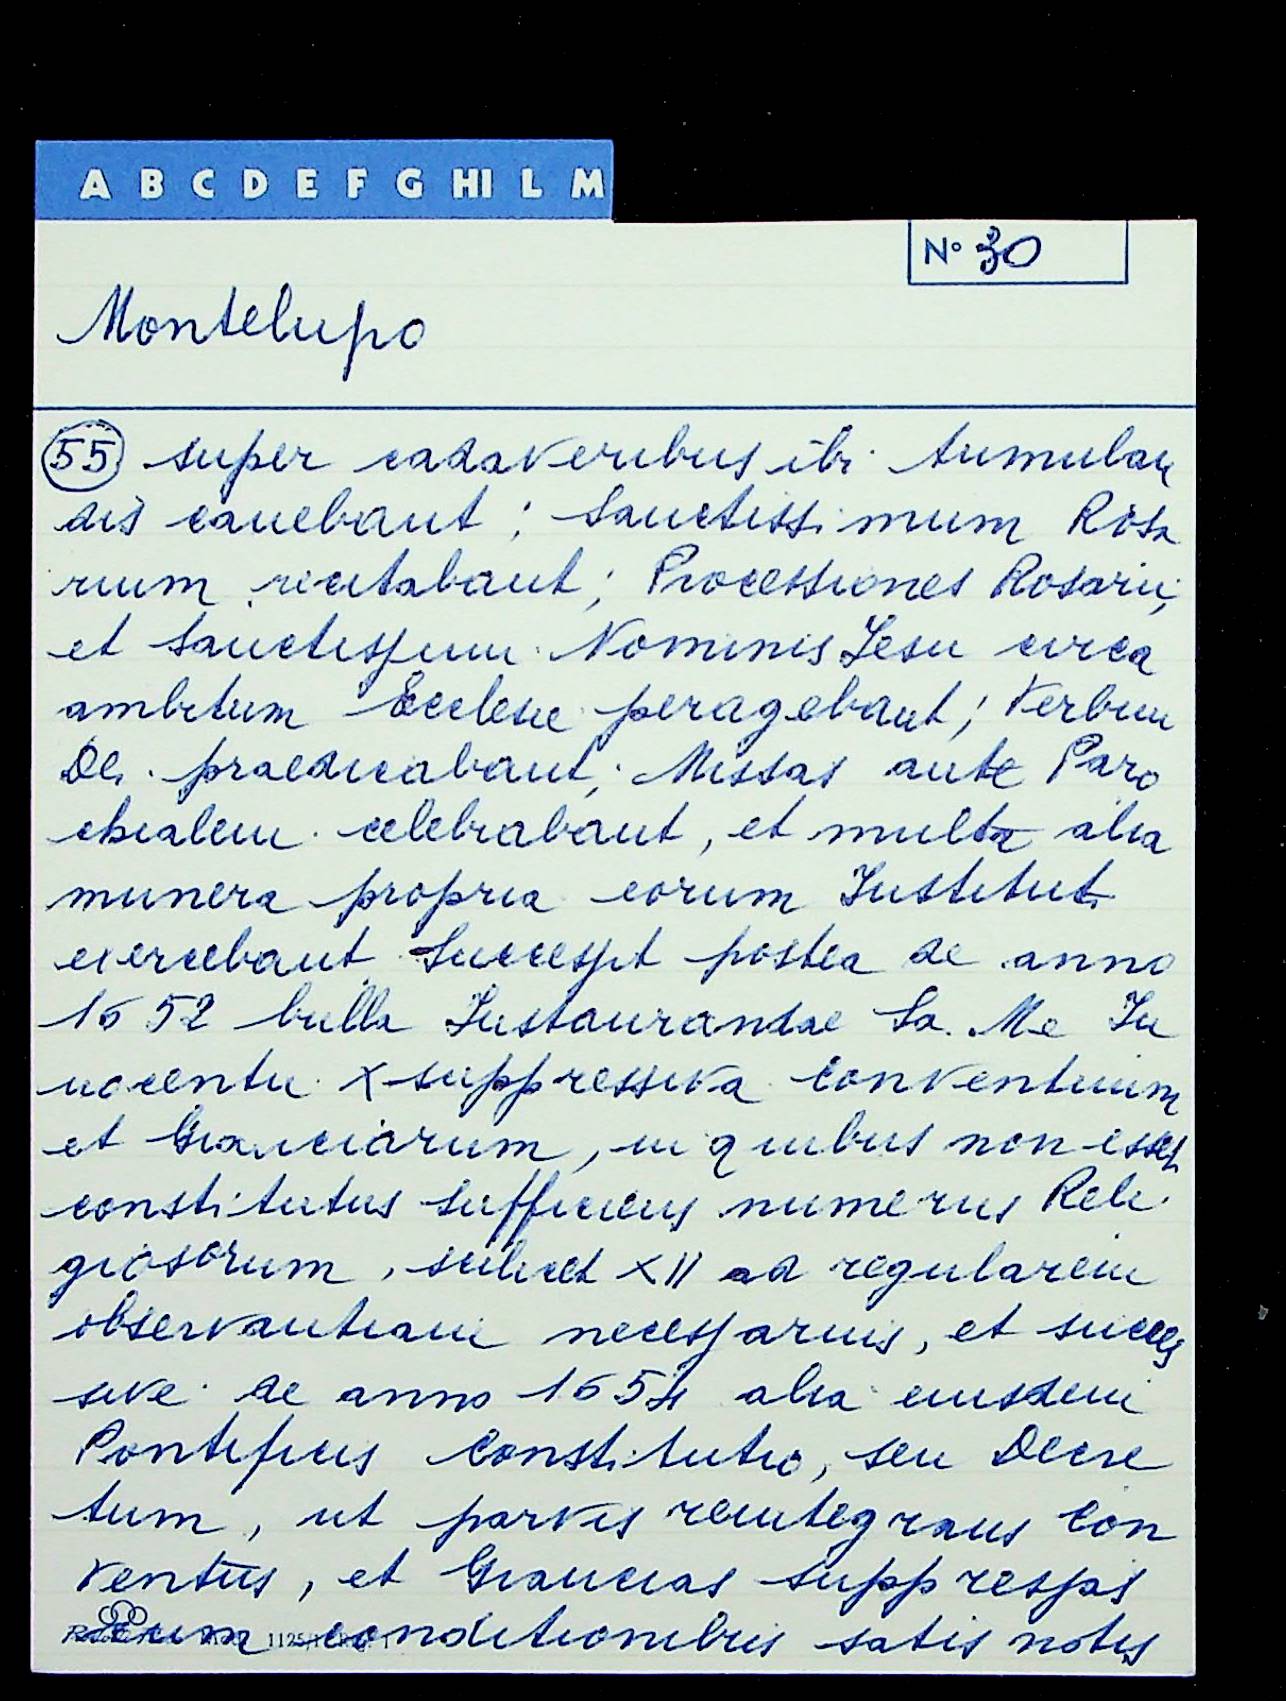 A B C D E F G HI L M
N° 30
Montelupo
55 super cadaveribus ibi tumulan
dis canebant; Sanctissimum Rosa
rium recitabant; Processiones Rosarii,
et Sanctissimi Nominis Jesu circa
ambitum Ecclesie peragebant; Verbum
Dei praedicabant; Missas ante Paro
chialem celebrabant, et multa alia
munera propria eorum Instituti
exercebant. Successit postea de anno
1652 bulla Instaurandae Sa. Me In
nocentii X suppressiva conventuum
et Granciarum, in quibus non esset
constitutus sufficiens numerus Reli
giosorum, scilicet XII ad regularem
observantiam necessarius, et succes
sive de anno 1654 alia eiusdem
Pontificis Constitutio, seu Decre
tum, ut parvis reintegrans Con
ventus, et Grancias suppressas
cum conditionibus satis notis
1125/1